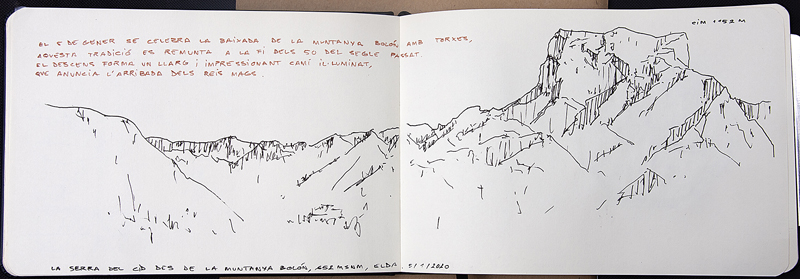 CIM 1152 M
EL 5 DE GENER SE CELEBRA LA BAIXADA DE LA MUNTANYA BOLÓN AMB TORXES,
AQUESTA TRADICIÓ ES REMUNTA A LA FI DELS 50 DEL SEGLE PASSAT.
EL DESCENS FORMA UN LLARG I IMPRESSIONANT CAMÍ IL·LUMINAT,
QUE ANUNCIA L'ARRIBADA DELS REIS MAGS.
LA SERRA DEL CID DES DE LA MUNTANYA BOLÓN, 652 MSNM, ELDA 5/1/2020